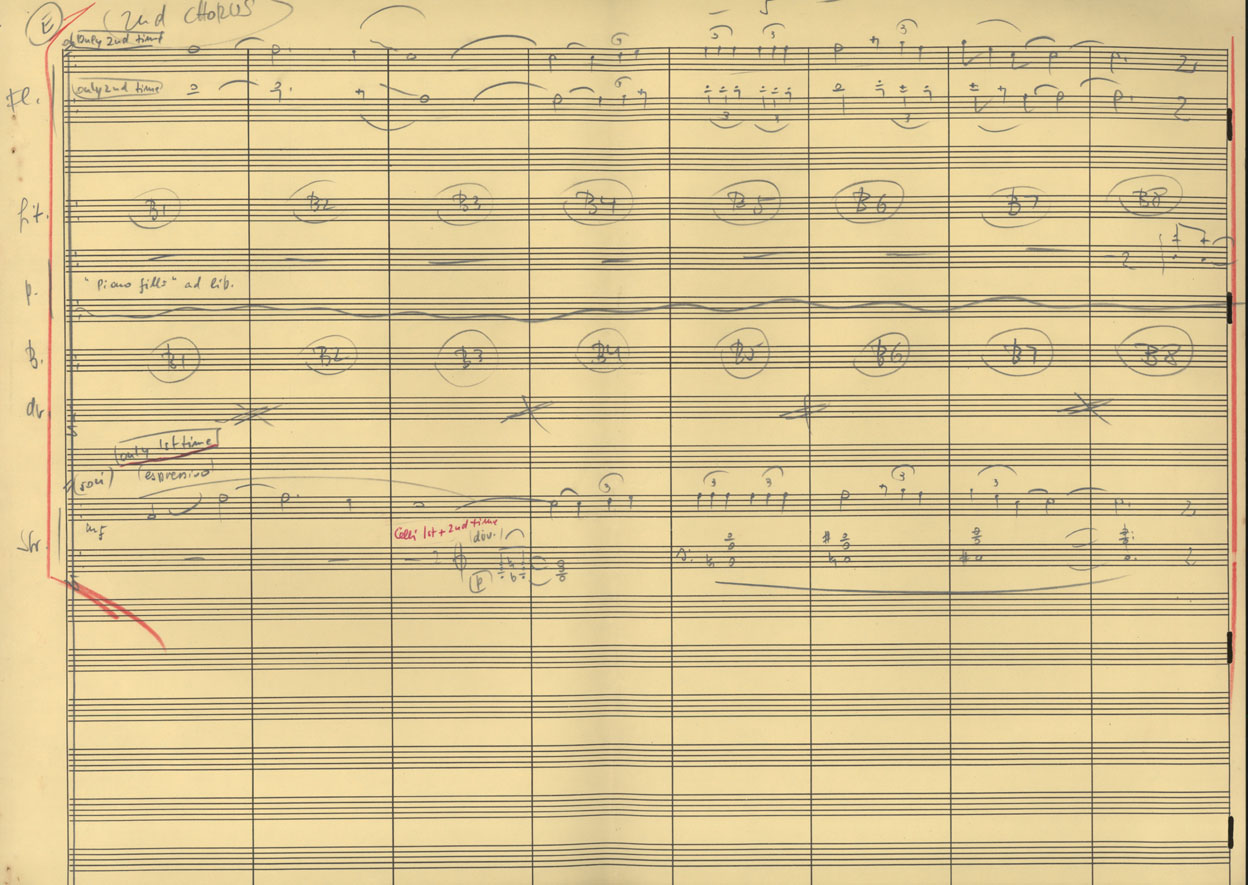 E (2nd CHORUS)
only 2nd time
Fl. only 2nd time
3 3 3
Git. B1 B2 B3 B4 B5 B6 B7 B8
p. "Piano fills" ad lib.
B. B1 B2 B3 B4 B5 B6 B7 B8
dr.
only 1st time
(soli) (espressivo)
3 3 3 3 3
mf
Str. Celli 1st + 2nd time div.
p